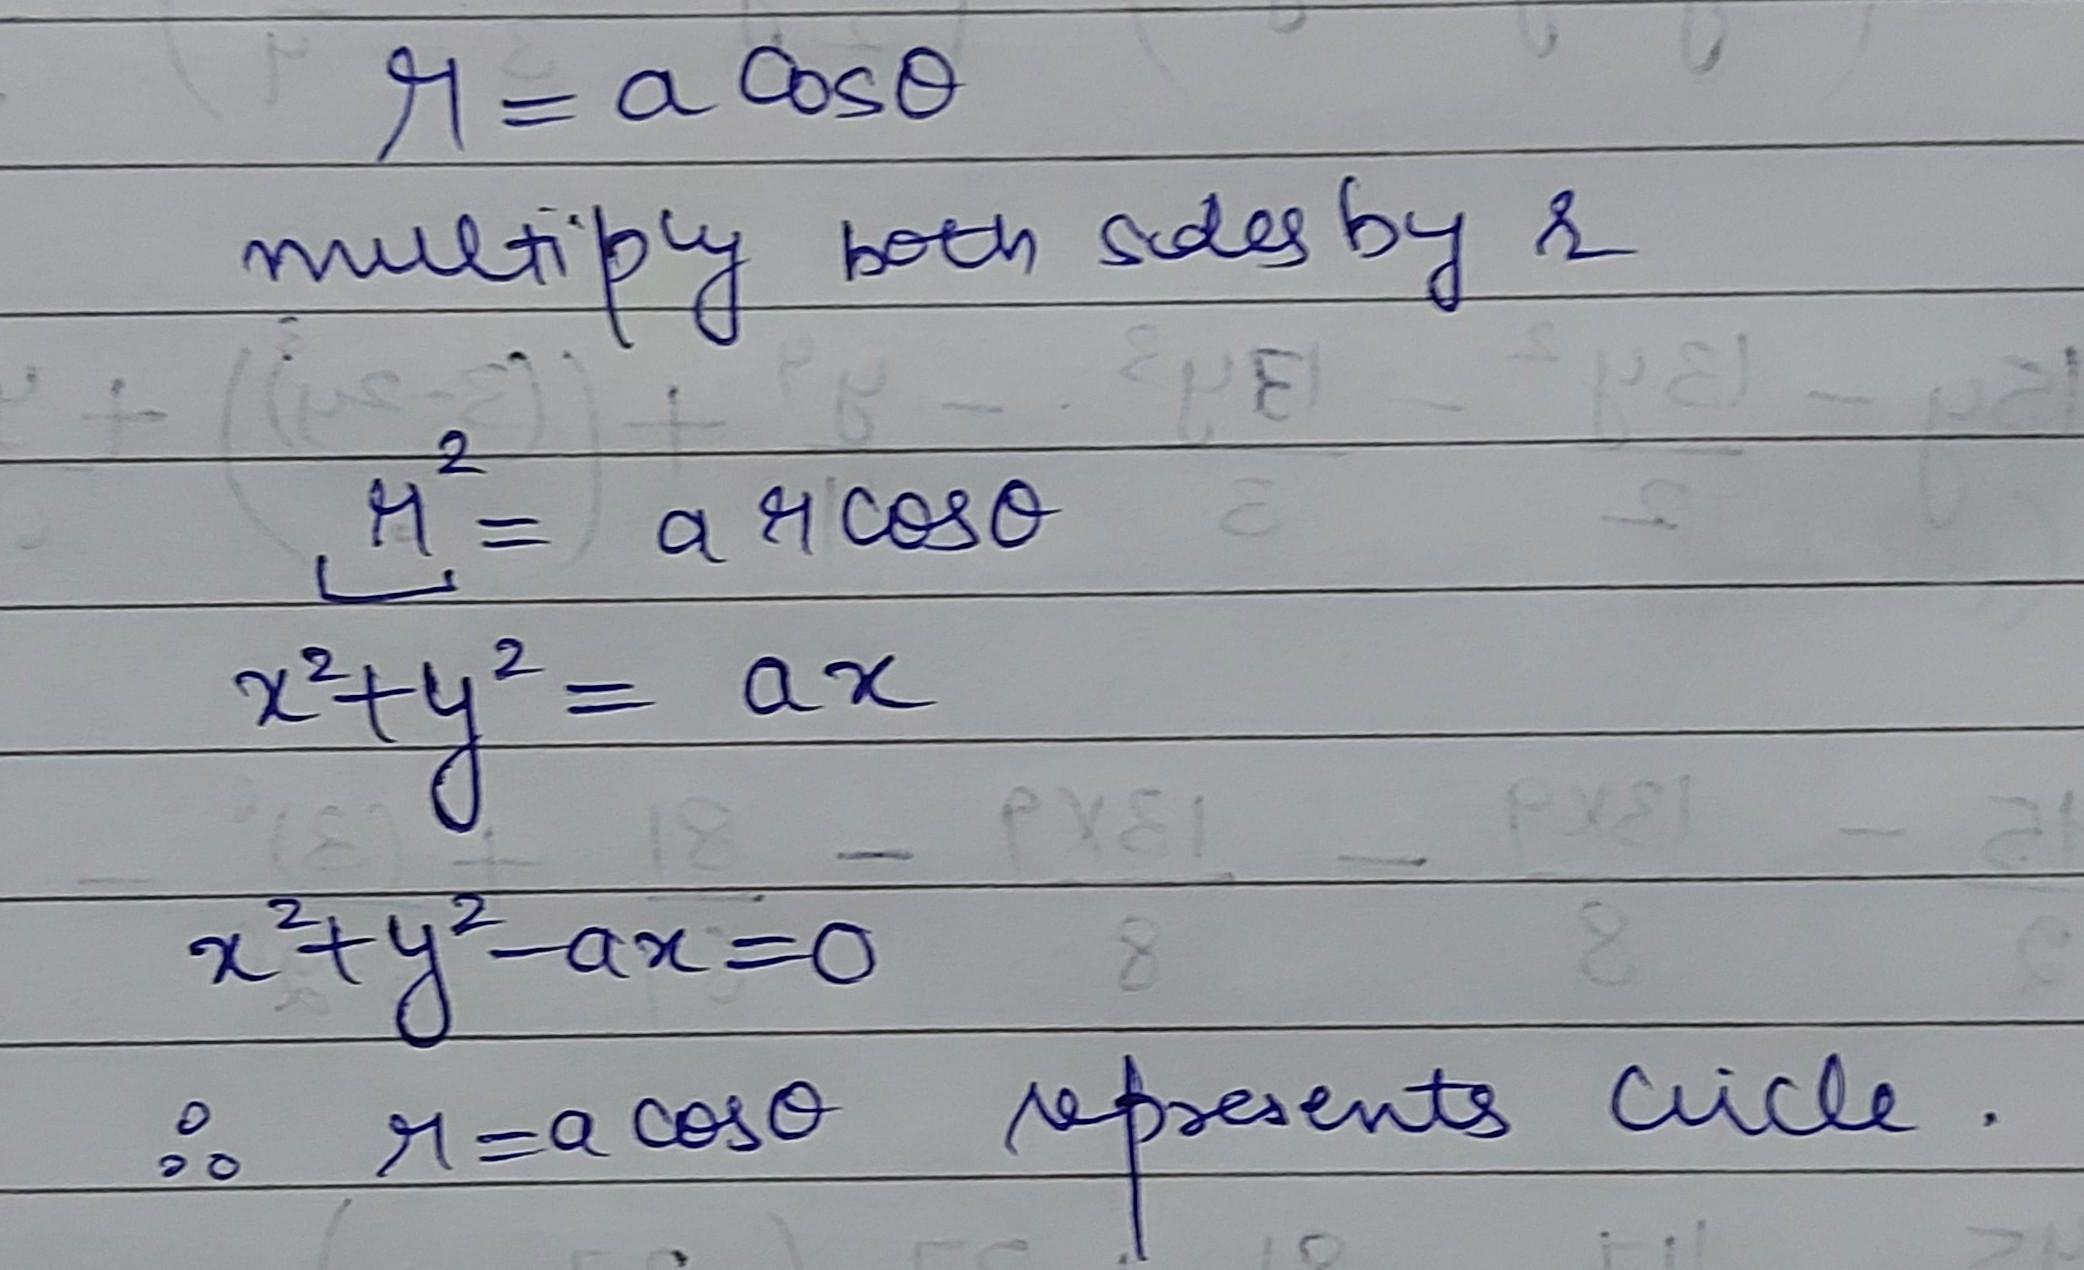 r = a cosθ
multiply both sides by r
r² = a r cosθ
x² + y² = ax
x² + y² - ax = 0
∴ r = a cosθ represents circle.